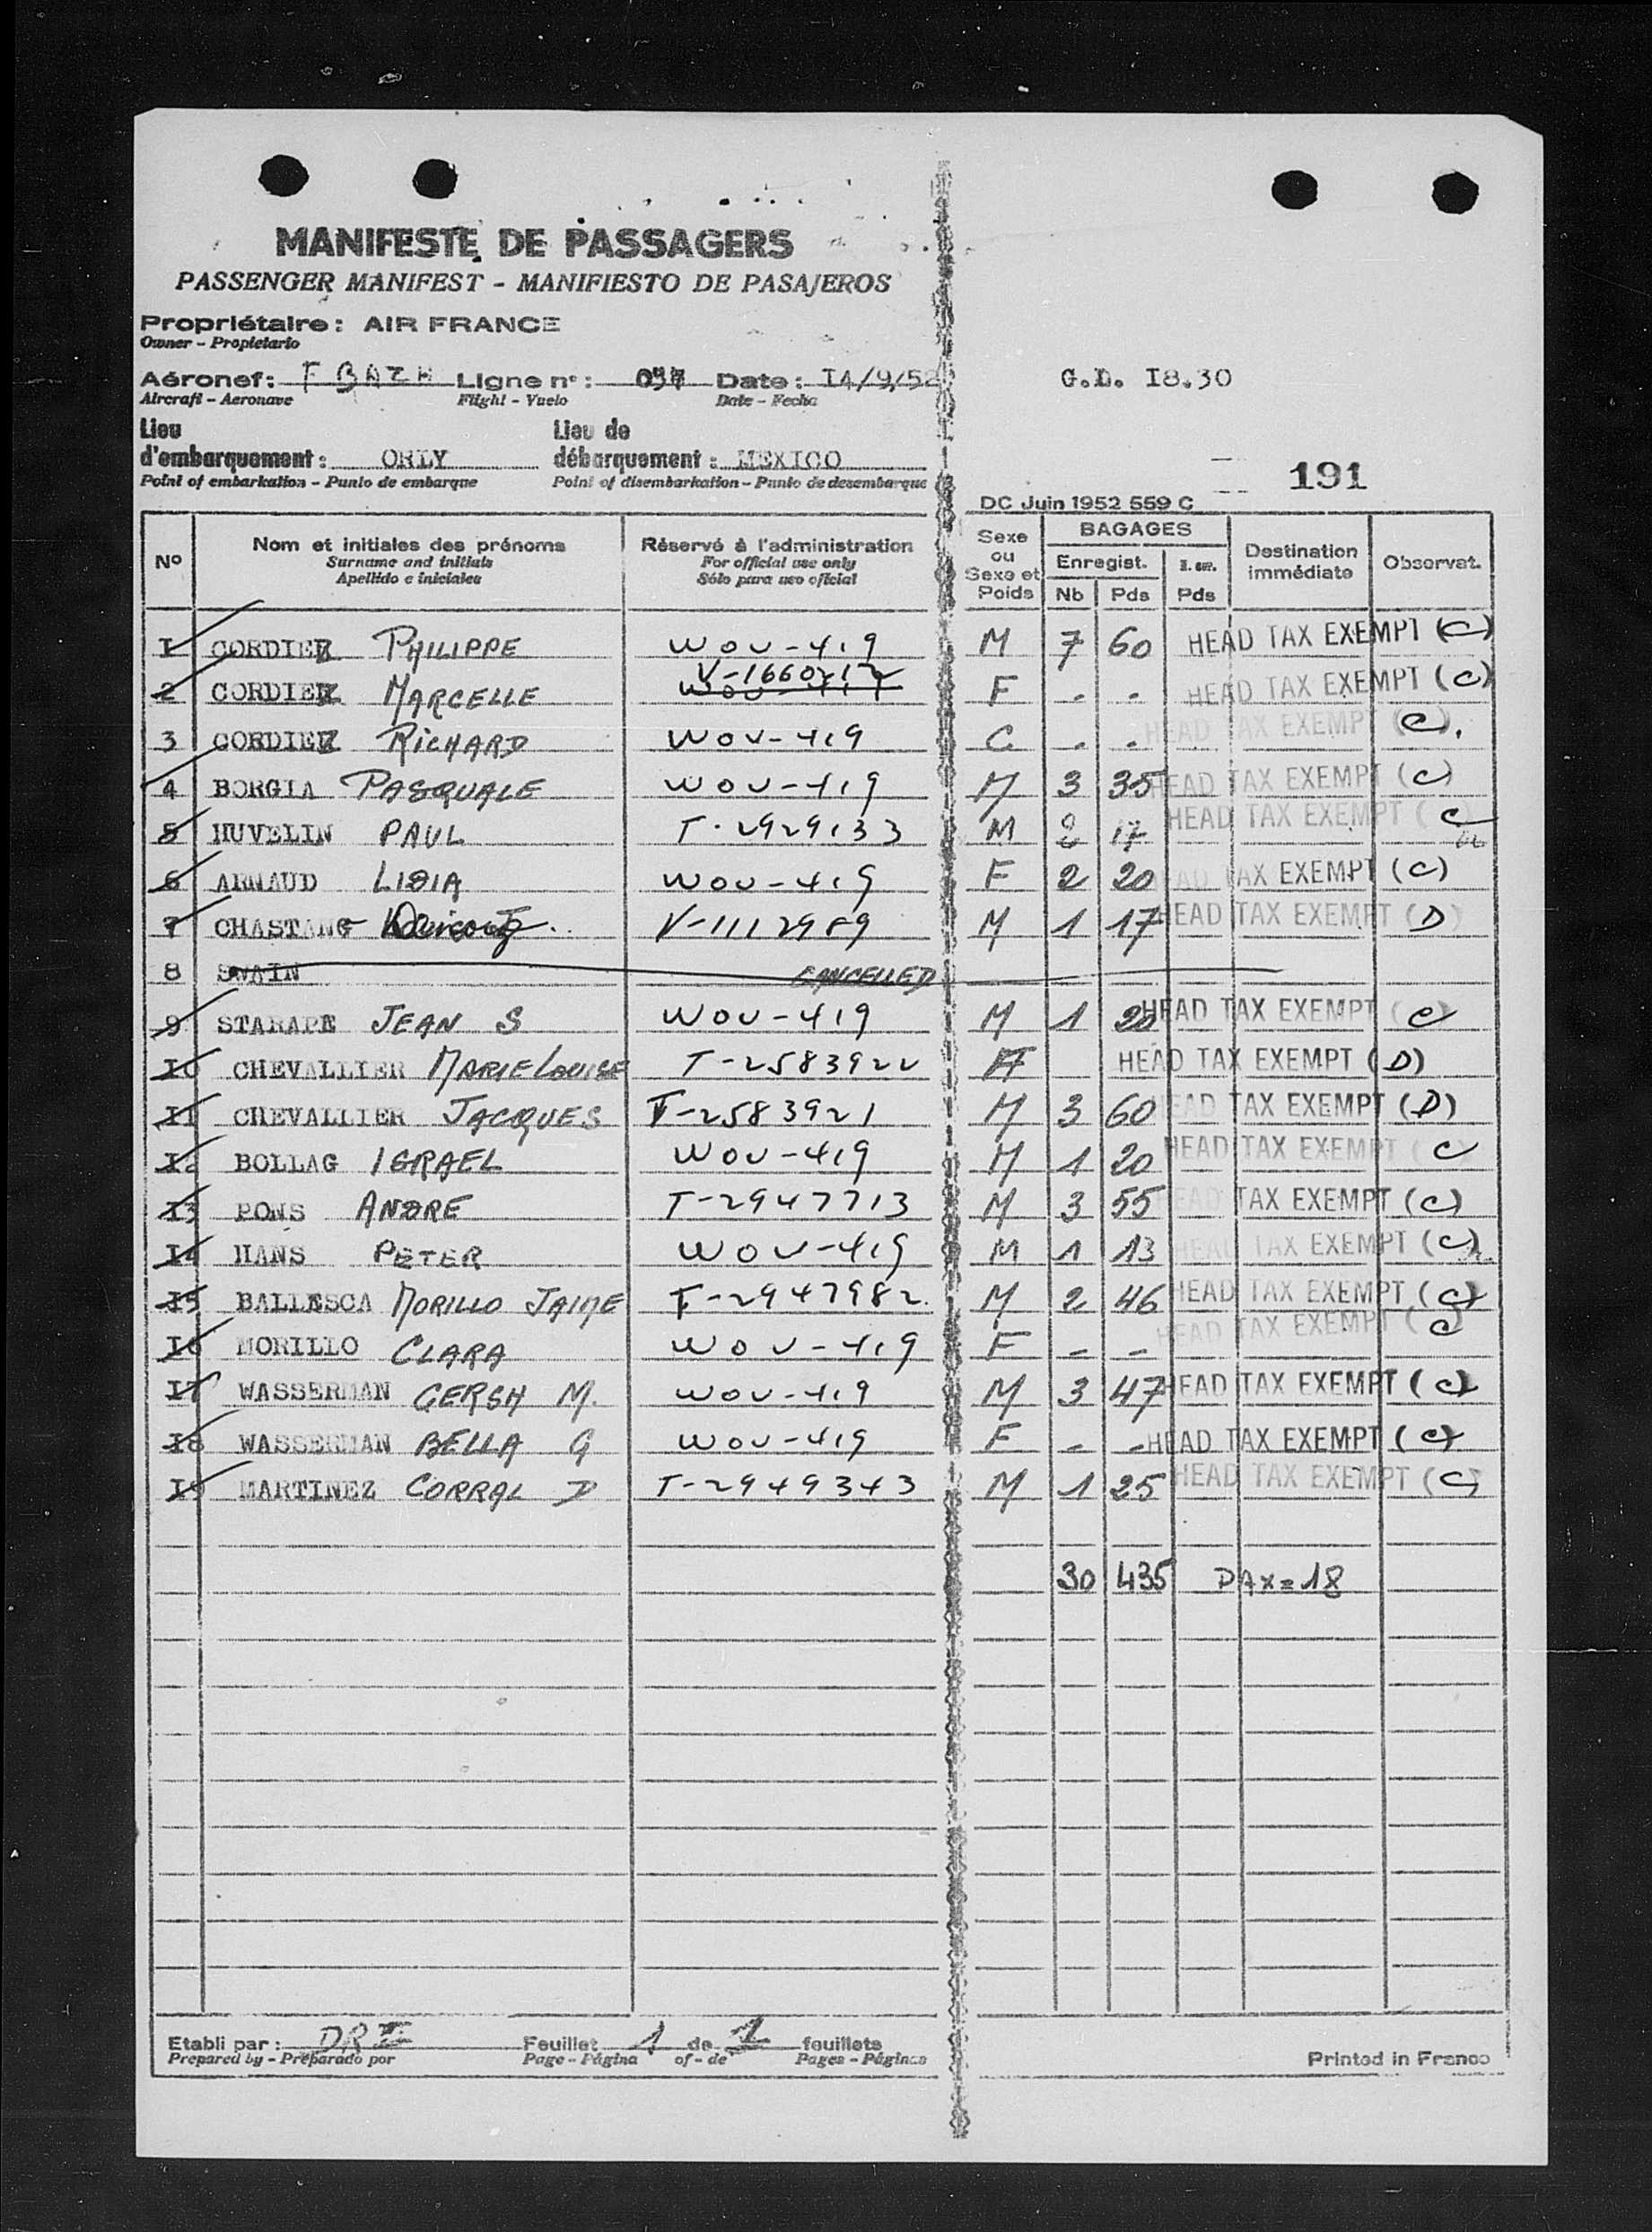 MANIFESTE DE PASSAGERS
PASSENGER MANIFEST - MANIFIESTO DE PASAJEROS
Propriétaire: AIR FRANCE
Owner - Propietario
Aéronef: F BAZH Ligne n°: Date: I4/9/52 G.D. I8.30
Aircraft - Aeronave Flight - Vuelo Date - Fecha
Lieu d'embarquement: ORLY Lieu de débarquement: MEXICO
Point of embarkation - Punto de embarque Point of disembarkation - Punto de desembarque
191
DC Juin 1952 559 C
N° Nom et initiales des prénoms Réservé à l'administration Sexe ou Sexe et Poids BAGAGES Destination immédiate Observat.
Surname and initials For official use only Enregist.
Apellido e iniciales Sólo para uso oficial Nb Pds Pds
I CORDIER PHILIPPE WOU-419 M 7 60 HEAD TAX EXEMPT (C)
2 CORDIER MARCELLE V-1660212 WOU-419 F - - HEAD TAX EXEMPT (C)
3 CORDIER RICHARD WOU-419 C - - HEAD TAX EXEMPT (C).
4 BORGIA PASQUALE WOU-419 M 3 35 HEAD TAX EXEMPT (C)
5 HUVELIN PAUL T-2929133 M 2 17 HEAD TAX EXEMPT (C
6 ARNAUD LIDIA WOU-419 F 2 20 HEAD TAX EXEMPT (C)
7 CHASTANG V-1112989 M 1 17 HEAD TAX EXEMPT (D)
8 SWAIN CANCELLED
9 STARAPE JEAN S WOU-419 M 1 20 HEAD TAX EXEMPT (C
I0 CHEVALLIER MARIE LOUISE T-2583922 F HEAD TAX EXEMPT (D)
II CHEVALLIER JACQUES T-2583921 M 3 60 HEAD TAX EXEMPT (D)
I2 BOLLAG ISRAEL WOU-419 M 1 20 HEAD TAX EXEMPT (C
I3 PONS ANDRE T-2947713 M 3 55 HEAD TAX EXEMPT (C)
I4 HANS PETER WOU-419 M 1 13 HEAD TAX EXEMPT (C)
I5 BALLESCA MORILLO JAIME T-2947982 M 2 46 HEAD TAX EXEMPT (C)
I6 MORILLO CLARA WOU-419 F - - HEAD TAX EXEMPT (C
I7 WASSERMAN GERSH M. WOU-419 M 3 47 HEAD TAX EXEMPT (C)
I8 WASSERMAN BELLA G WOU-419 F - - HEAD TAX EXEMPT (C)
I9 MARTINEZ CORRAL D T-2949343 M 1 25 HEAD TAX EXEMPT (C)
30 435 PAX=18
Etabli par: Feuillet 1 de 1 feuillets
Prepared by - Preparado por Page - Página of - de Pages - Páginas Printed in France